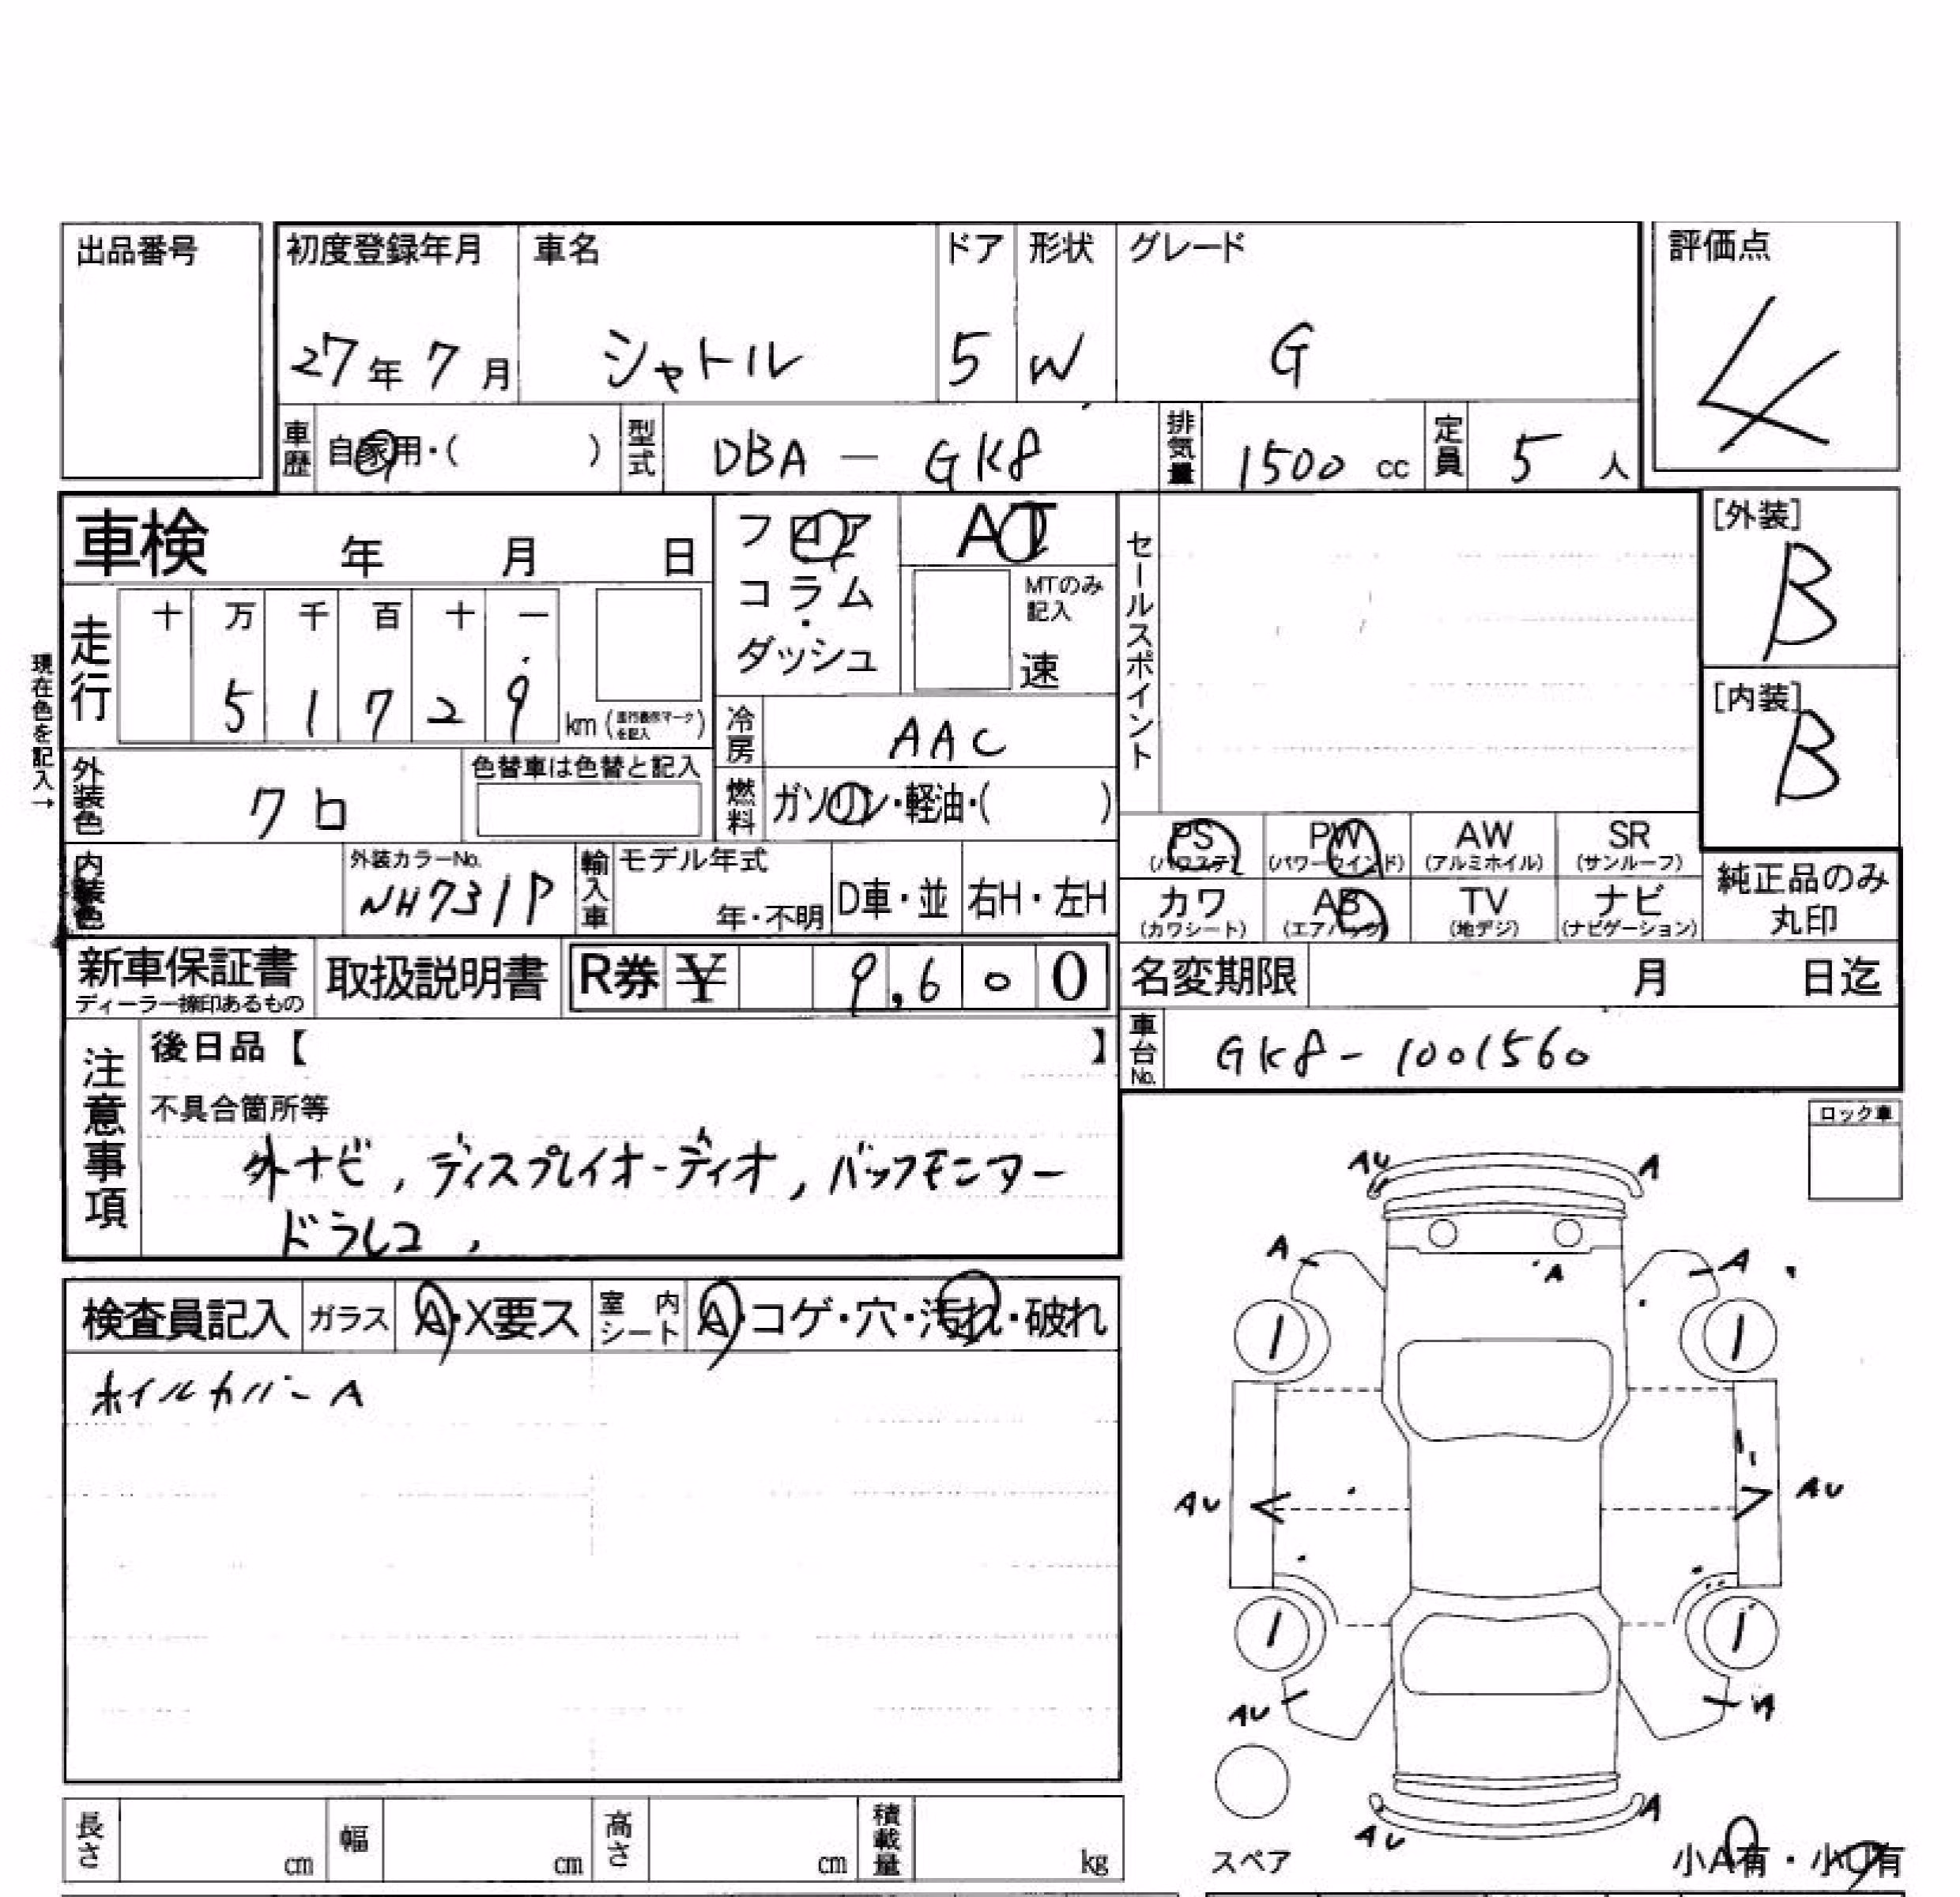 出品番号
初度登録年月 車名 ドア 形状 グレード 評価点
27年7月 シャトル 5 W G 4
車歴 自家用・( ) 型式 DBA - GK8 排気量 1500 cc 定員 5 人
車検 年 月 日 フロア AT セールスポイント [外装]
コラム・ダッシュ MTのみ記入 速 B
走行 十 万 千 百 十 一
5 1 7 2 9 km (走行表示マークを記入)
現在色を記入→
[内装]
B
冷房 AAC
外装色 クロ 色替車は色替と記入
燃料 ガソリン・軽油・( )
PS (パワステ) PW (パワーウインド) AW (アルミホイル) SR (サンルーフ)
内装色 外装カラーNo. NH731P 輸入車 モデル年式 年・不明 D車・並 右H・左H
カワ (カワシート) AB (エアバッグ) TV (地デジ) ナビ (ナビゲーション) 純正品のみ丸印
新車保証書 ディーラー捺印あるもの 取扱説明書 R券 ¥ 9,600 名変期限 月 日迄
車台No. GK8-1001560
注意事項 後日品【 】
不具合箇所等
外ナビ, ディスプレイオーディオ, バックモニター
ドラレコ,
ロック車
AU A
A A
A
検査員記入 ガラス A・X要ス 室内シート A・コゲ・穴・汚れ・破れ
1 1
ホイルカバーA
AU AU
1 1
AU A
A
AU
長さ cm 幅 cm 高さ cm 積載量 kg
スペア 小A有・小U有